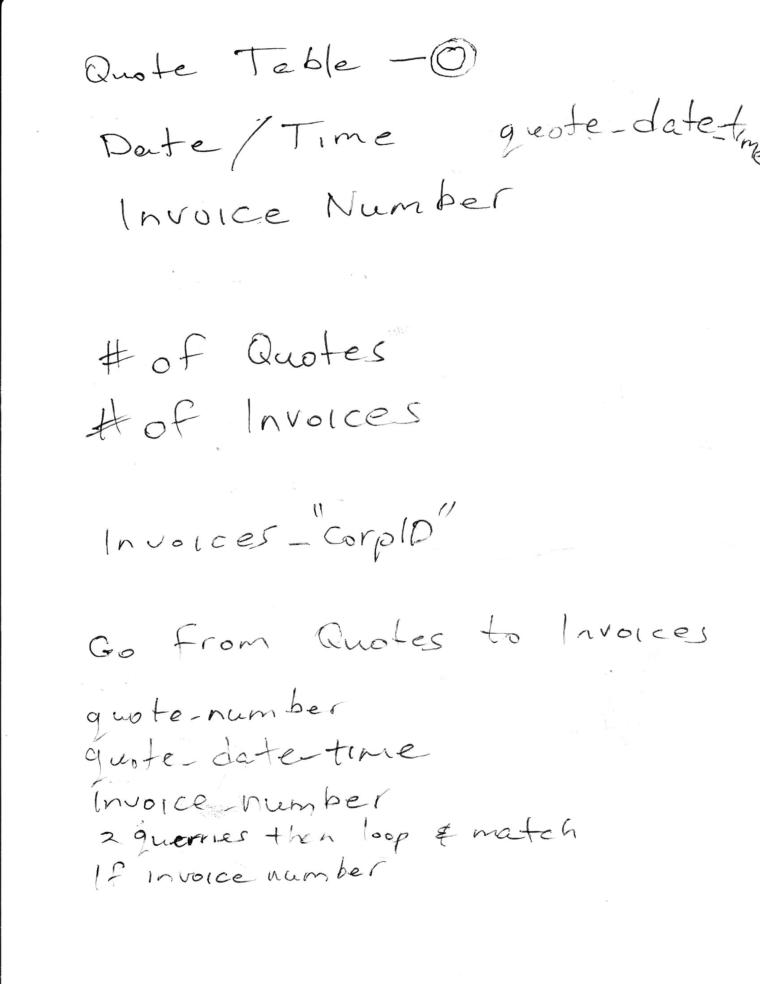 Quote Table —
Date/Time quote_date_time
Invoice Number
# of Quotes
# of Invoices
Invoices_"CorpID"
Go from Quotes to Invoices
quote_number
quote_date_time
Invoice_number
2 querries then loop & match
If invoice number